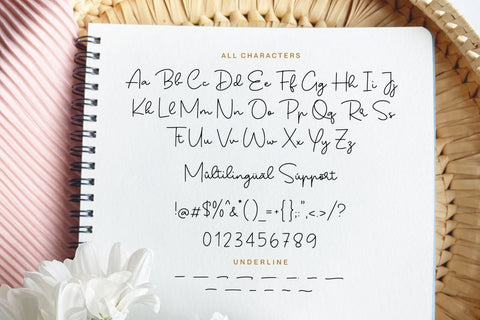 ALL CHARACTERS
Aa Bb Cc Dd Ee Ff Gg Hh Ii Jj
Kk Ll Mm Nn Oo Pp Qq Rr Ss
Tt Uu Vv Ww Xx Yy Zz
Multilingual Support
!@#$%^&*()_=+{};:",<.>/?
0123456789
UNDERLINE